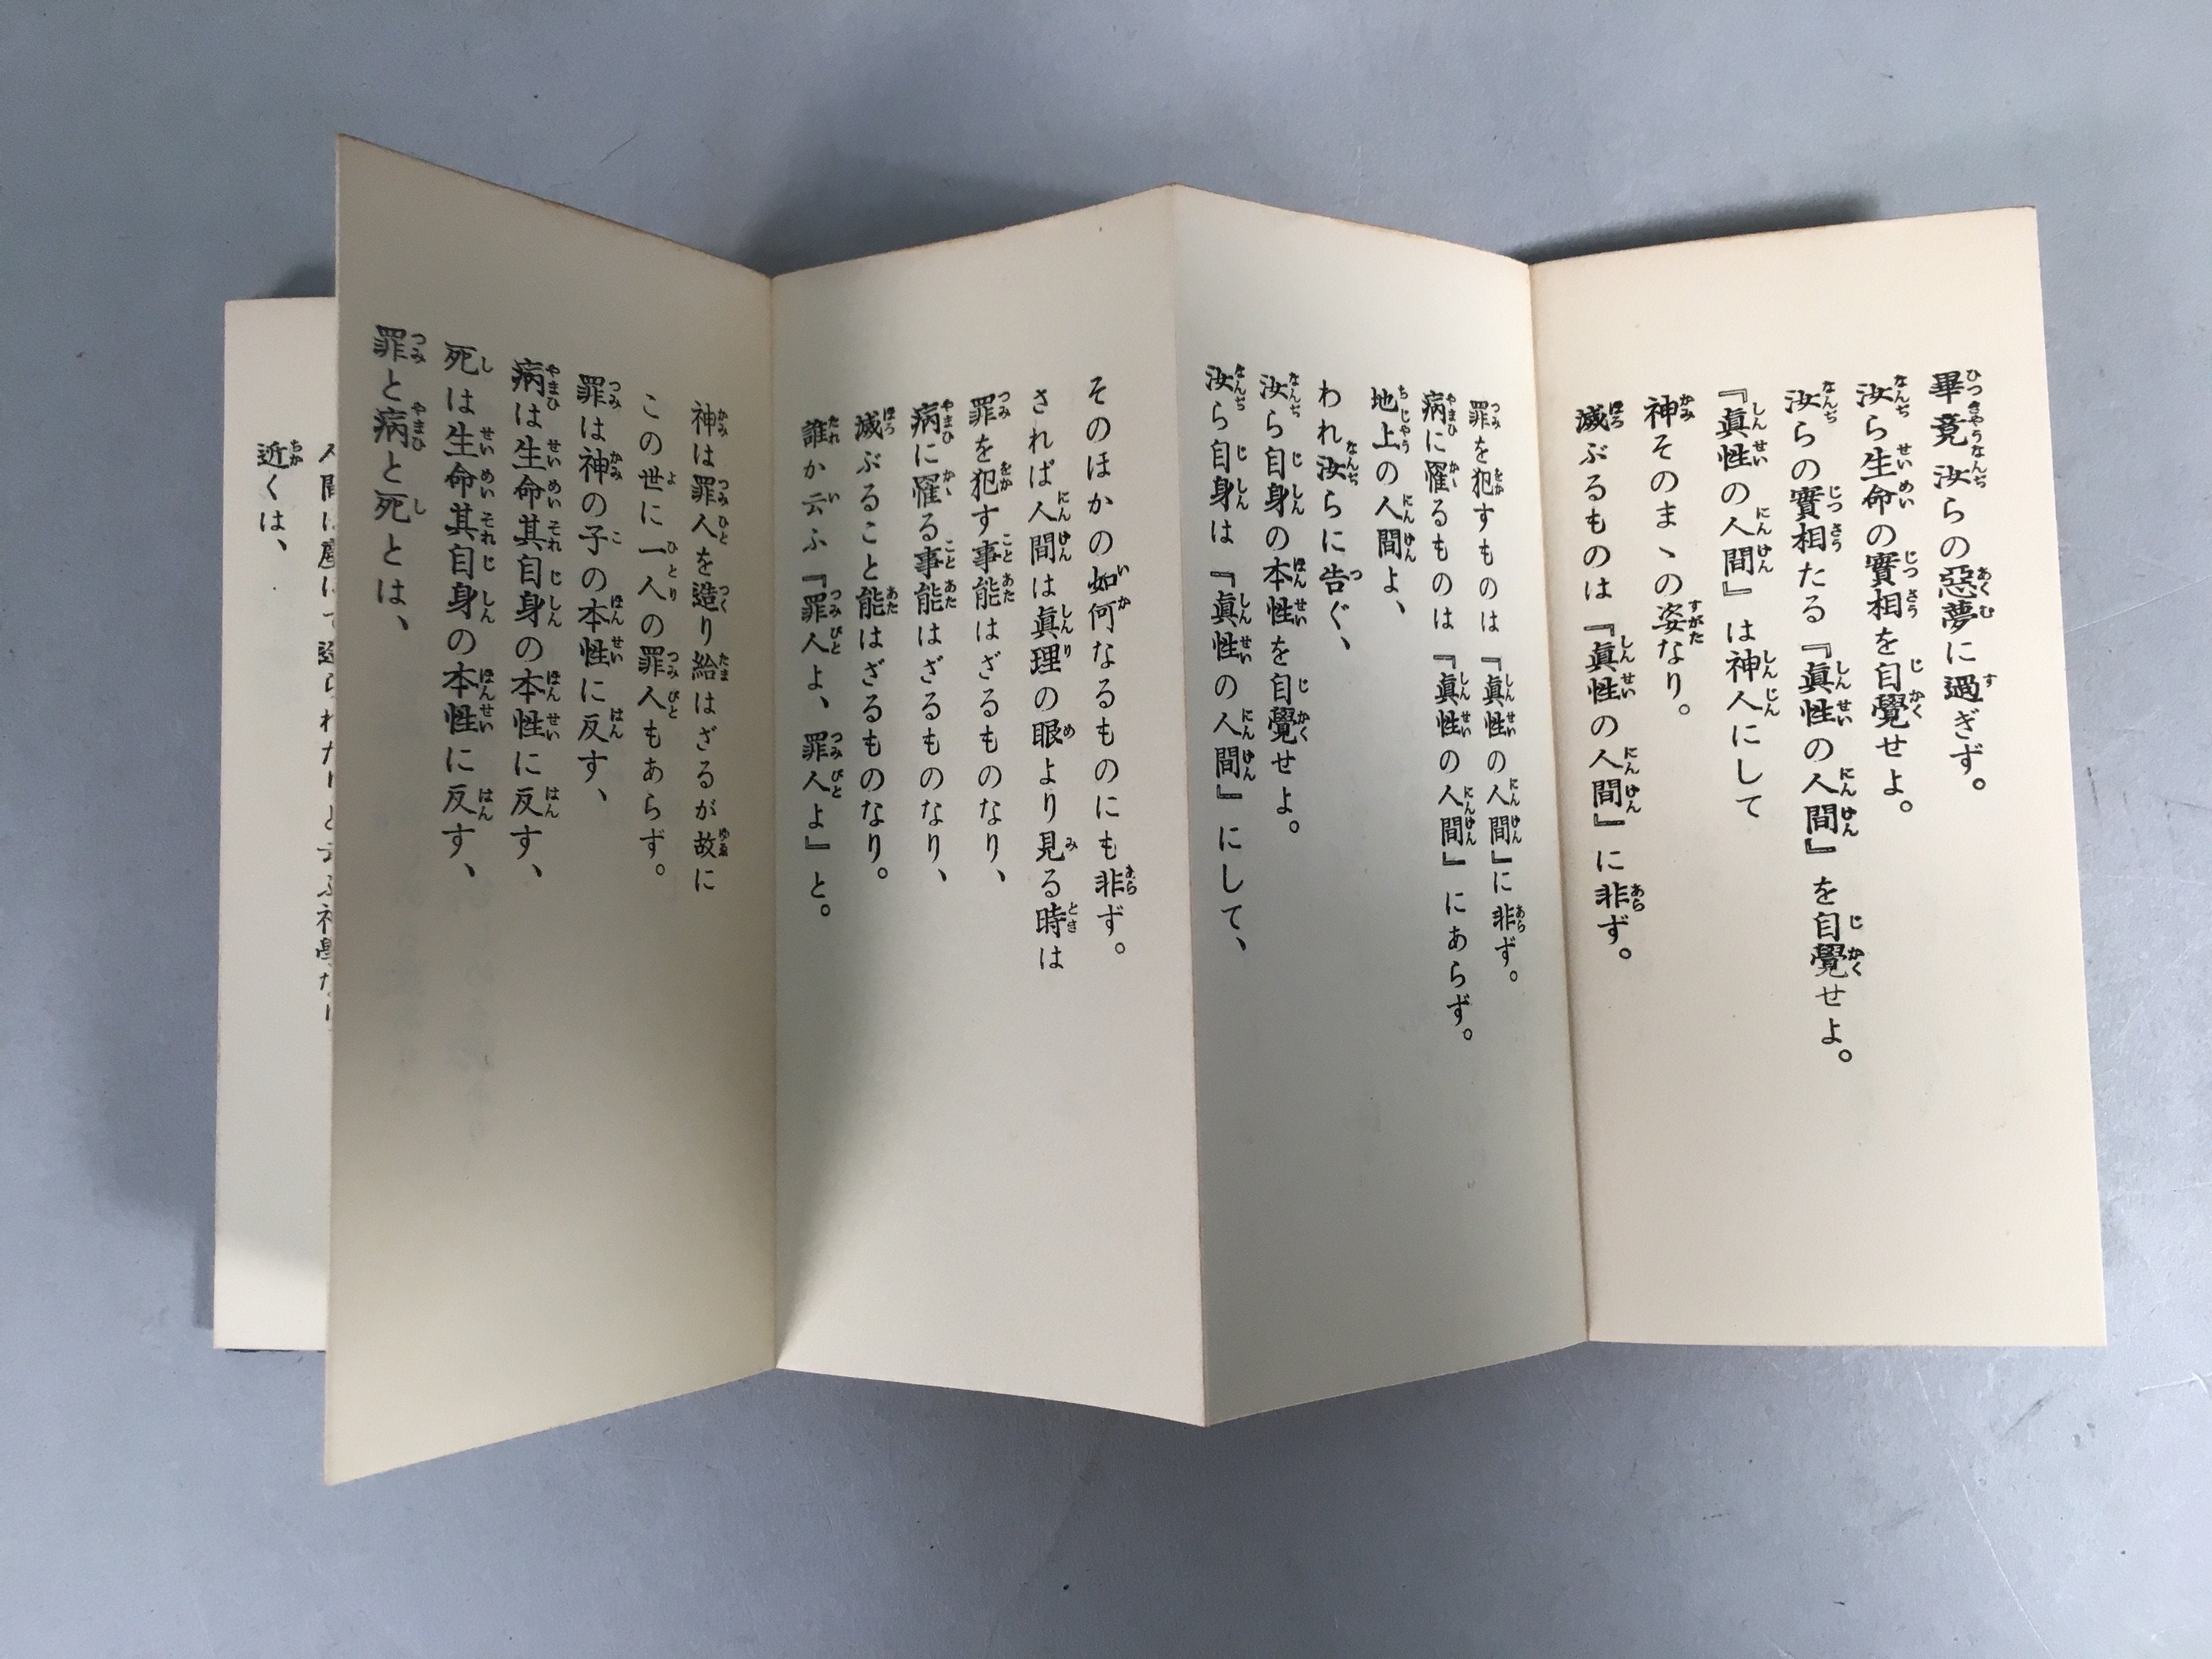 畢竟汝らの惡夢に過ぎず。
汝ら生命の實相を自覺せよ。
汝らの實相たる『眞性の人間』を自覺せよ。
『眞性の人間』は神人にして
神そのまゝの姿なり。
滅ぶるものは『眞性の人間』に非ず。
罪を犯すものは『眞性の人間』に非ず。
病に罹るものは『眞性の人間』にあらず。
地上の人間よ、
われ汝らに告ぐ、
汝ら自身の本性を自覺せよ。
汝ら自身は『眞性の人間』にして、
そのほかの如何なるものにも非ず。
されば人間は眞理の眼より見る時は
罪を犯す事能はざるものなり、
病に罹る事能はざるものなり、
滅ぶること能はざるものなり。
誰か云ふ『罪人よ、罪人よ』と。
神は罪人を造り給はざるが故に
この世に一人の罪人もあらず。
罪は神の子の本性に反す、
病は生命其自身の本性に反す、
死は生命其自身の本性に反す、
罪と病と死とは、
近くは、